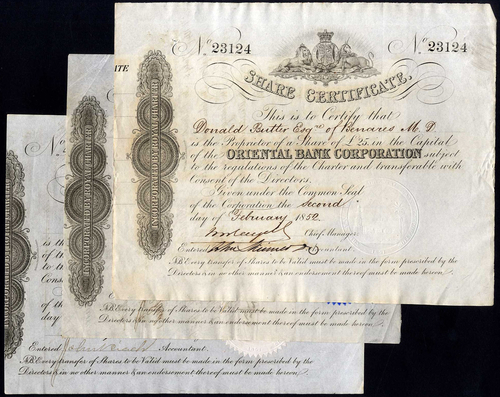 No. 23124 No. 23124
SHARE CERTIFICATE.
This is to Certify that
Donald Butter Esqre of Benares M.D
is the Proprietor of a Share of £25 in the Capital
of the ORIENTAL BANK CORPORATION subject
to the regulations of the Charter and transferable with
Consent of the Directors.
Given under the Common Seal
of the Corporation the second
day of February 1852
Chief Manager.
Entered Accountant.
NB. Every transfer of Shares to be Valid must be made in the form prescribed by the
Directors & in no other manner & an endorsement thereof must be made hereon.
INCORPORATED BY ROYAL CHARTER
ATE
INCORPORATED BY ROYAL CHARTER
NB. Every transfer of Shares to be Valid must be made in the form prescribed by the
Directors & in no other manner & an endorsement thereof must be made hereon.
No.
is the
of the
to the
Cons
of the
day
Entered Accountant.
NB. Every transfer of Shares to be Valid must be made in the form prescribed by the
Directors & in no other manner & an endorsement thereof must be made hereon.